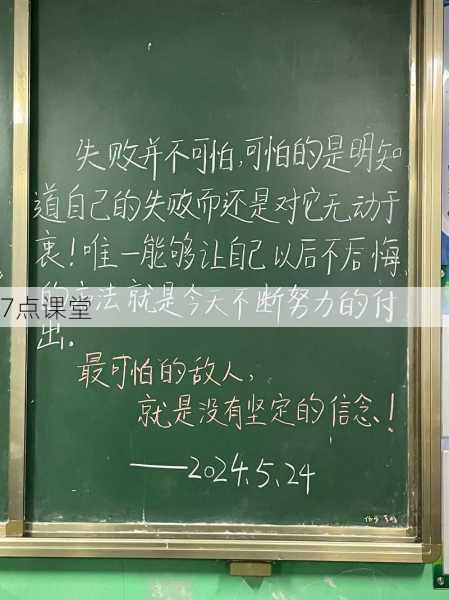 失败并不可怕,可怕的是明知
道自己的失败而还是对它无动于
衷!唯一能够让自己以后不后悔
的方法就是今天不断努力的付
出.
7点课堂
最可怕的敌人,
就是没有坚定的信念!
——2024.5.24